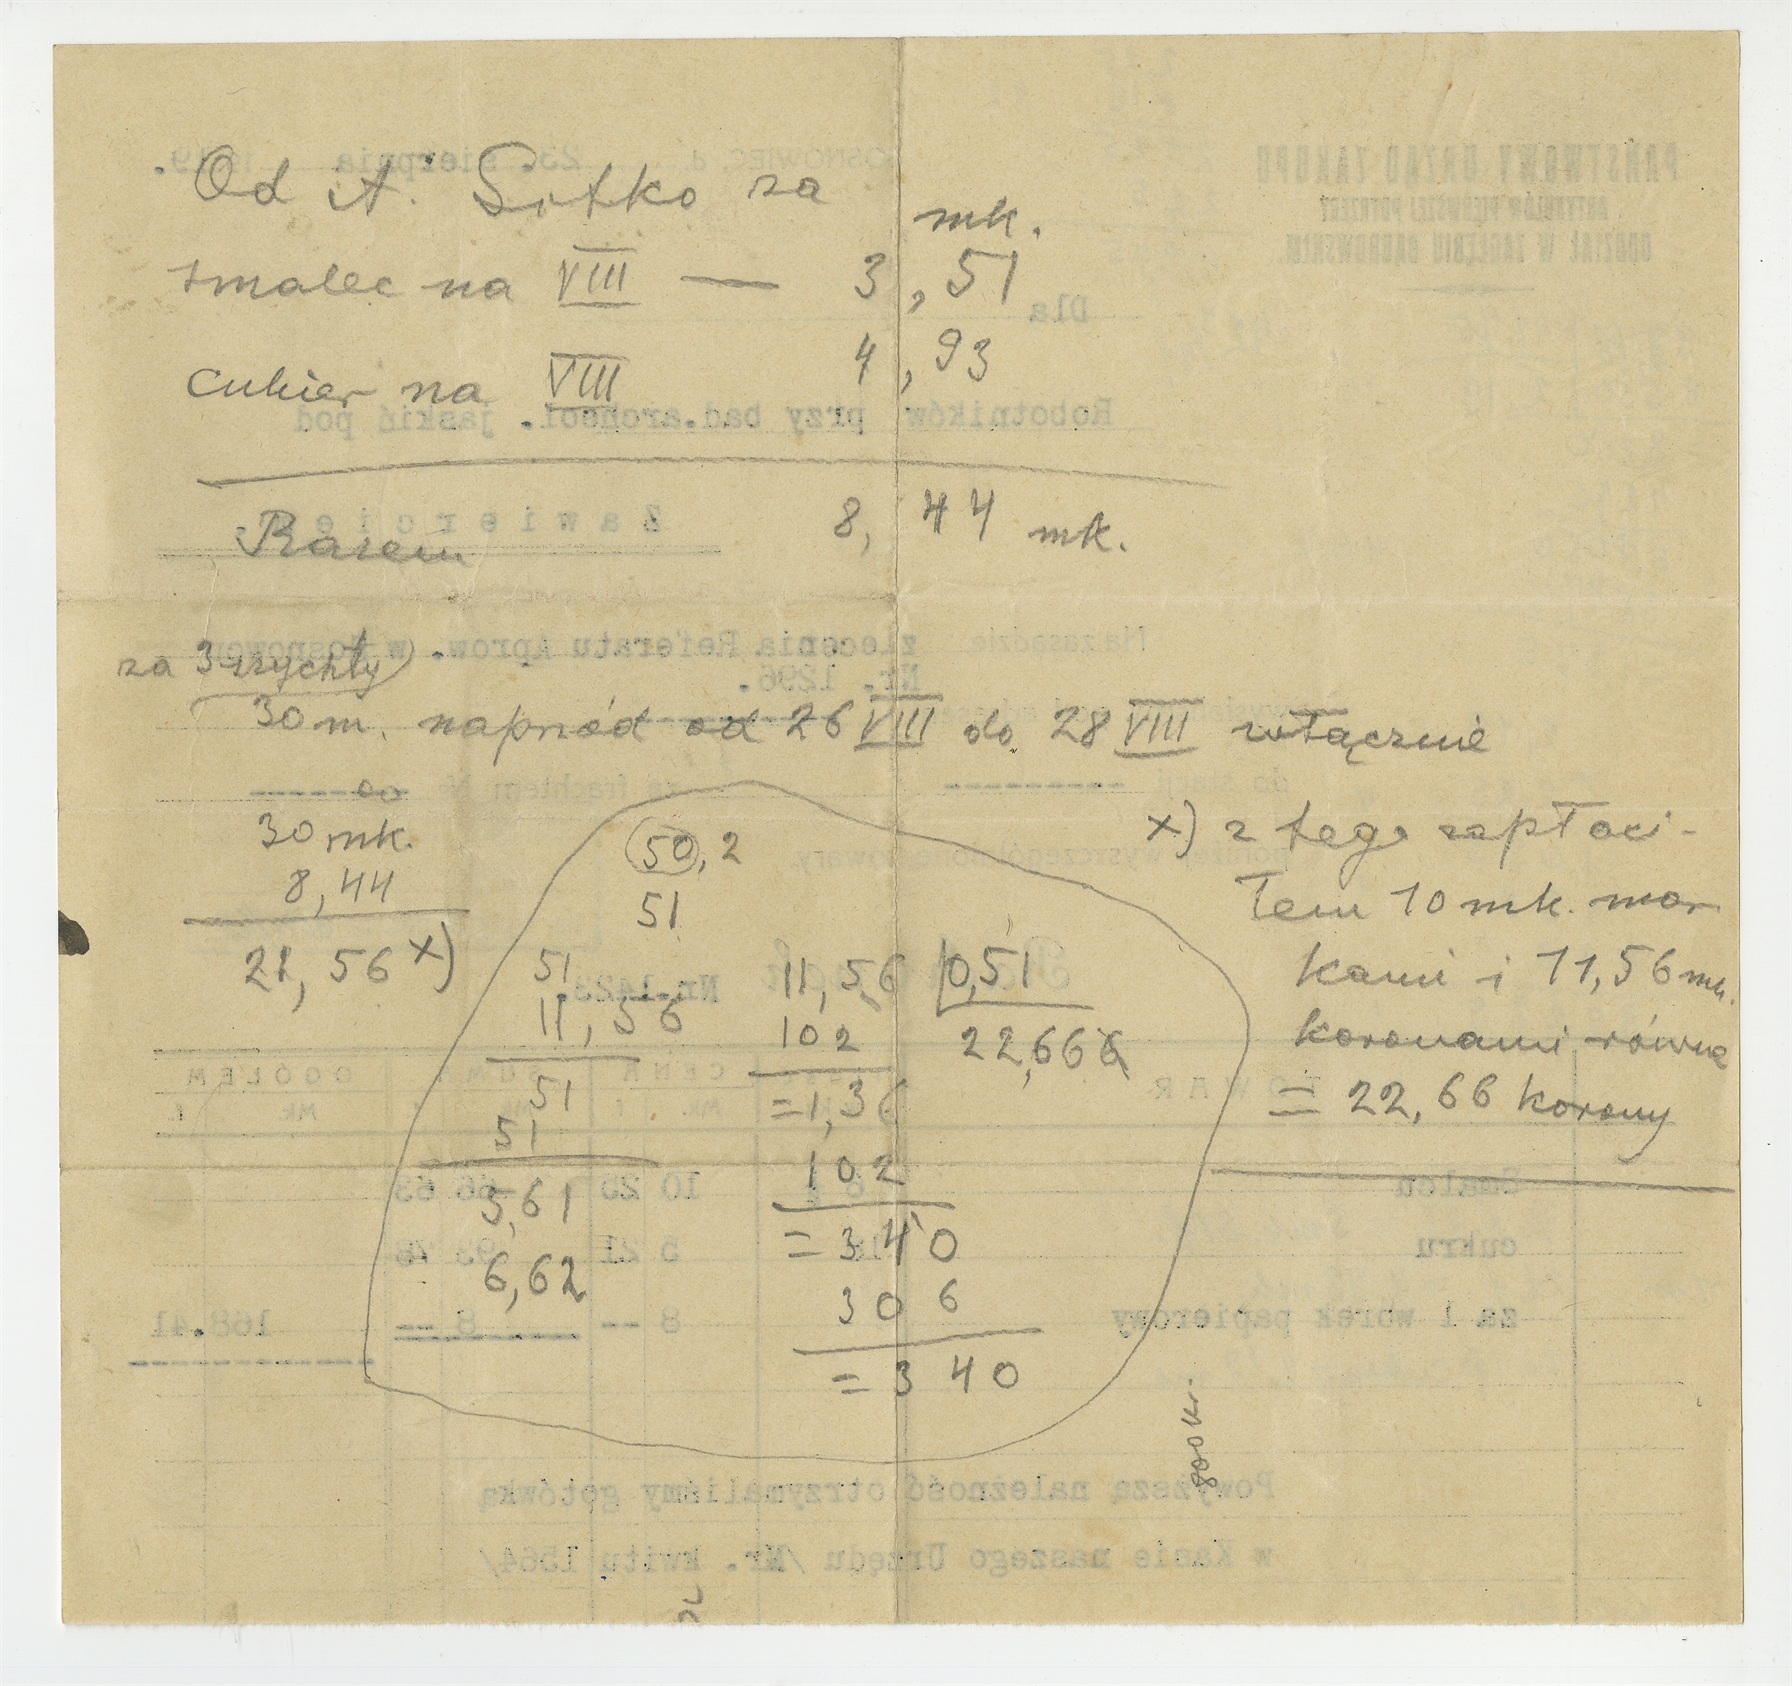 Od A. Sotko za
mk.
smalec na VIII — 3,51
cukier na VIII 4,93
Razem 8,44 mk.
za 3 rychty
30 m. naprzód od 26 VIII do 28 VIII włącznie
30 mk.
8,44
21,56 x)
x) z tego zapłaci-
łem 10 mk. mar
kami i 11,56 mk.
koronami równe
= 22,66 korony
50,2
51
51
11,56
51
51
5,61
6,62
11,56 0,51
102 22,666
=1,36
102
=340
306
=340
PAŃSTWOWY URZĄD ZAKUPU
ARTYKUŁÓW PIERWSZEJ POTRZEBY
ODDZIAŁ W ZAGŁĘBIU DĄBROWSKIM.
SOSNOWIEC, d. 23. sierpnia 1919.
Dla
Robotników przy bad.archeol. jaskiń pod
Zawiercie
Na zasadzie zlecenia Referatu Aprow. w Sosnowcu
Nr. 1296.
za frachtem №
Nr. 1423.
TOWAR CENA SUMA OGÓŁEM
Mk. f. Mk. f. Mk. f.
Smalcu 10 25 66 63
cukru 5 21 93 78
za 1 worek papierowy 8 -- 8 -- 168.41
Powyższą należność otrzymaliśmy gotówką
w Kasie naszego Urzędu /Nr. kwitu 1564/